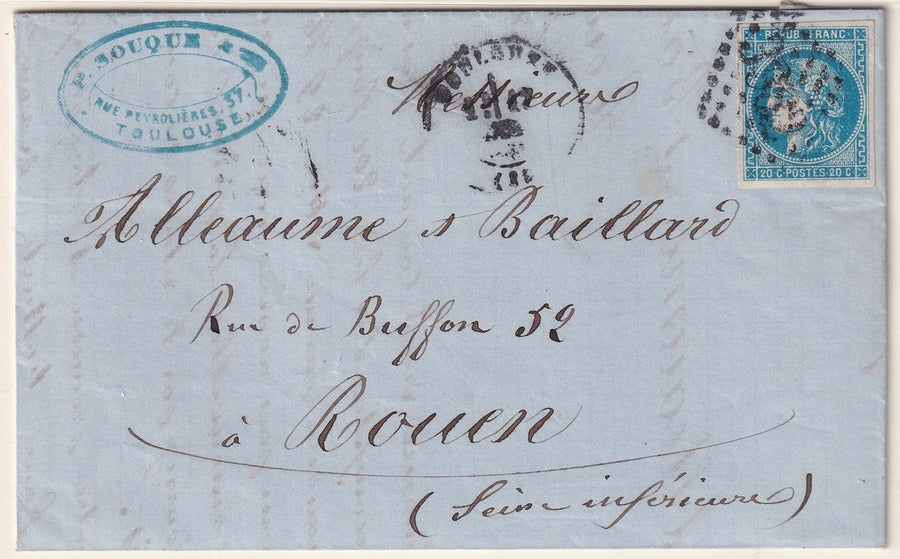 F. SOUQUE
RUE PEYROLIÈRES, 37.
TOULOUSE
TOULOUSE
(30)
REPUB. FRANC
20 C·POSTES·20 C
Messieurs
Alleaume & Baillard
Rue de Buffon 52
à Rouen
(Seine inférieure)